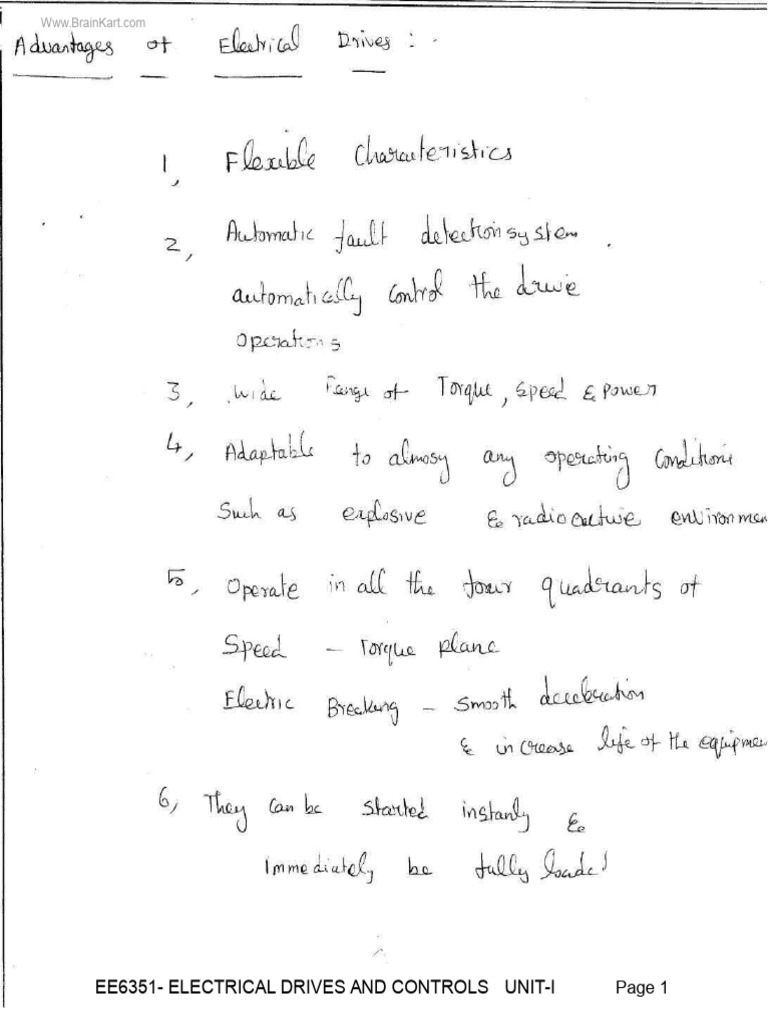 www.BrainKart.com
Advantages of Electrical Drives : -
1, Flexible Characteristics
2, Automatic fault detection system .
automatically control the drive
operations
3, Wide Range of Torque, Speed & Power
4, Adaptable to almosy any operating Conditions
Such as explosive & radioactive environmen
5, Operate in all the four quadrants of
Speed – Torque plane
Electric Breaking – Smooth deceleration
& increase life of the equipmen
6, They can be started instantly &
Immediately be fully loaded
EE6351- ELECTRICAL DRIVES AND CONTROLS UNIT-I Page 1